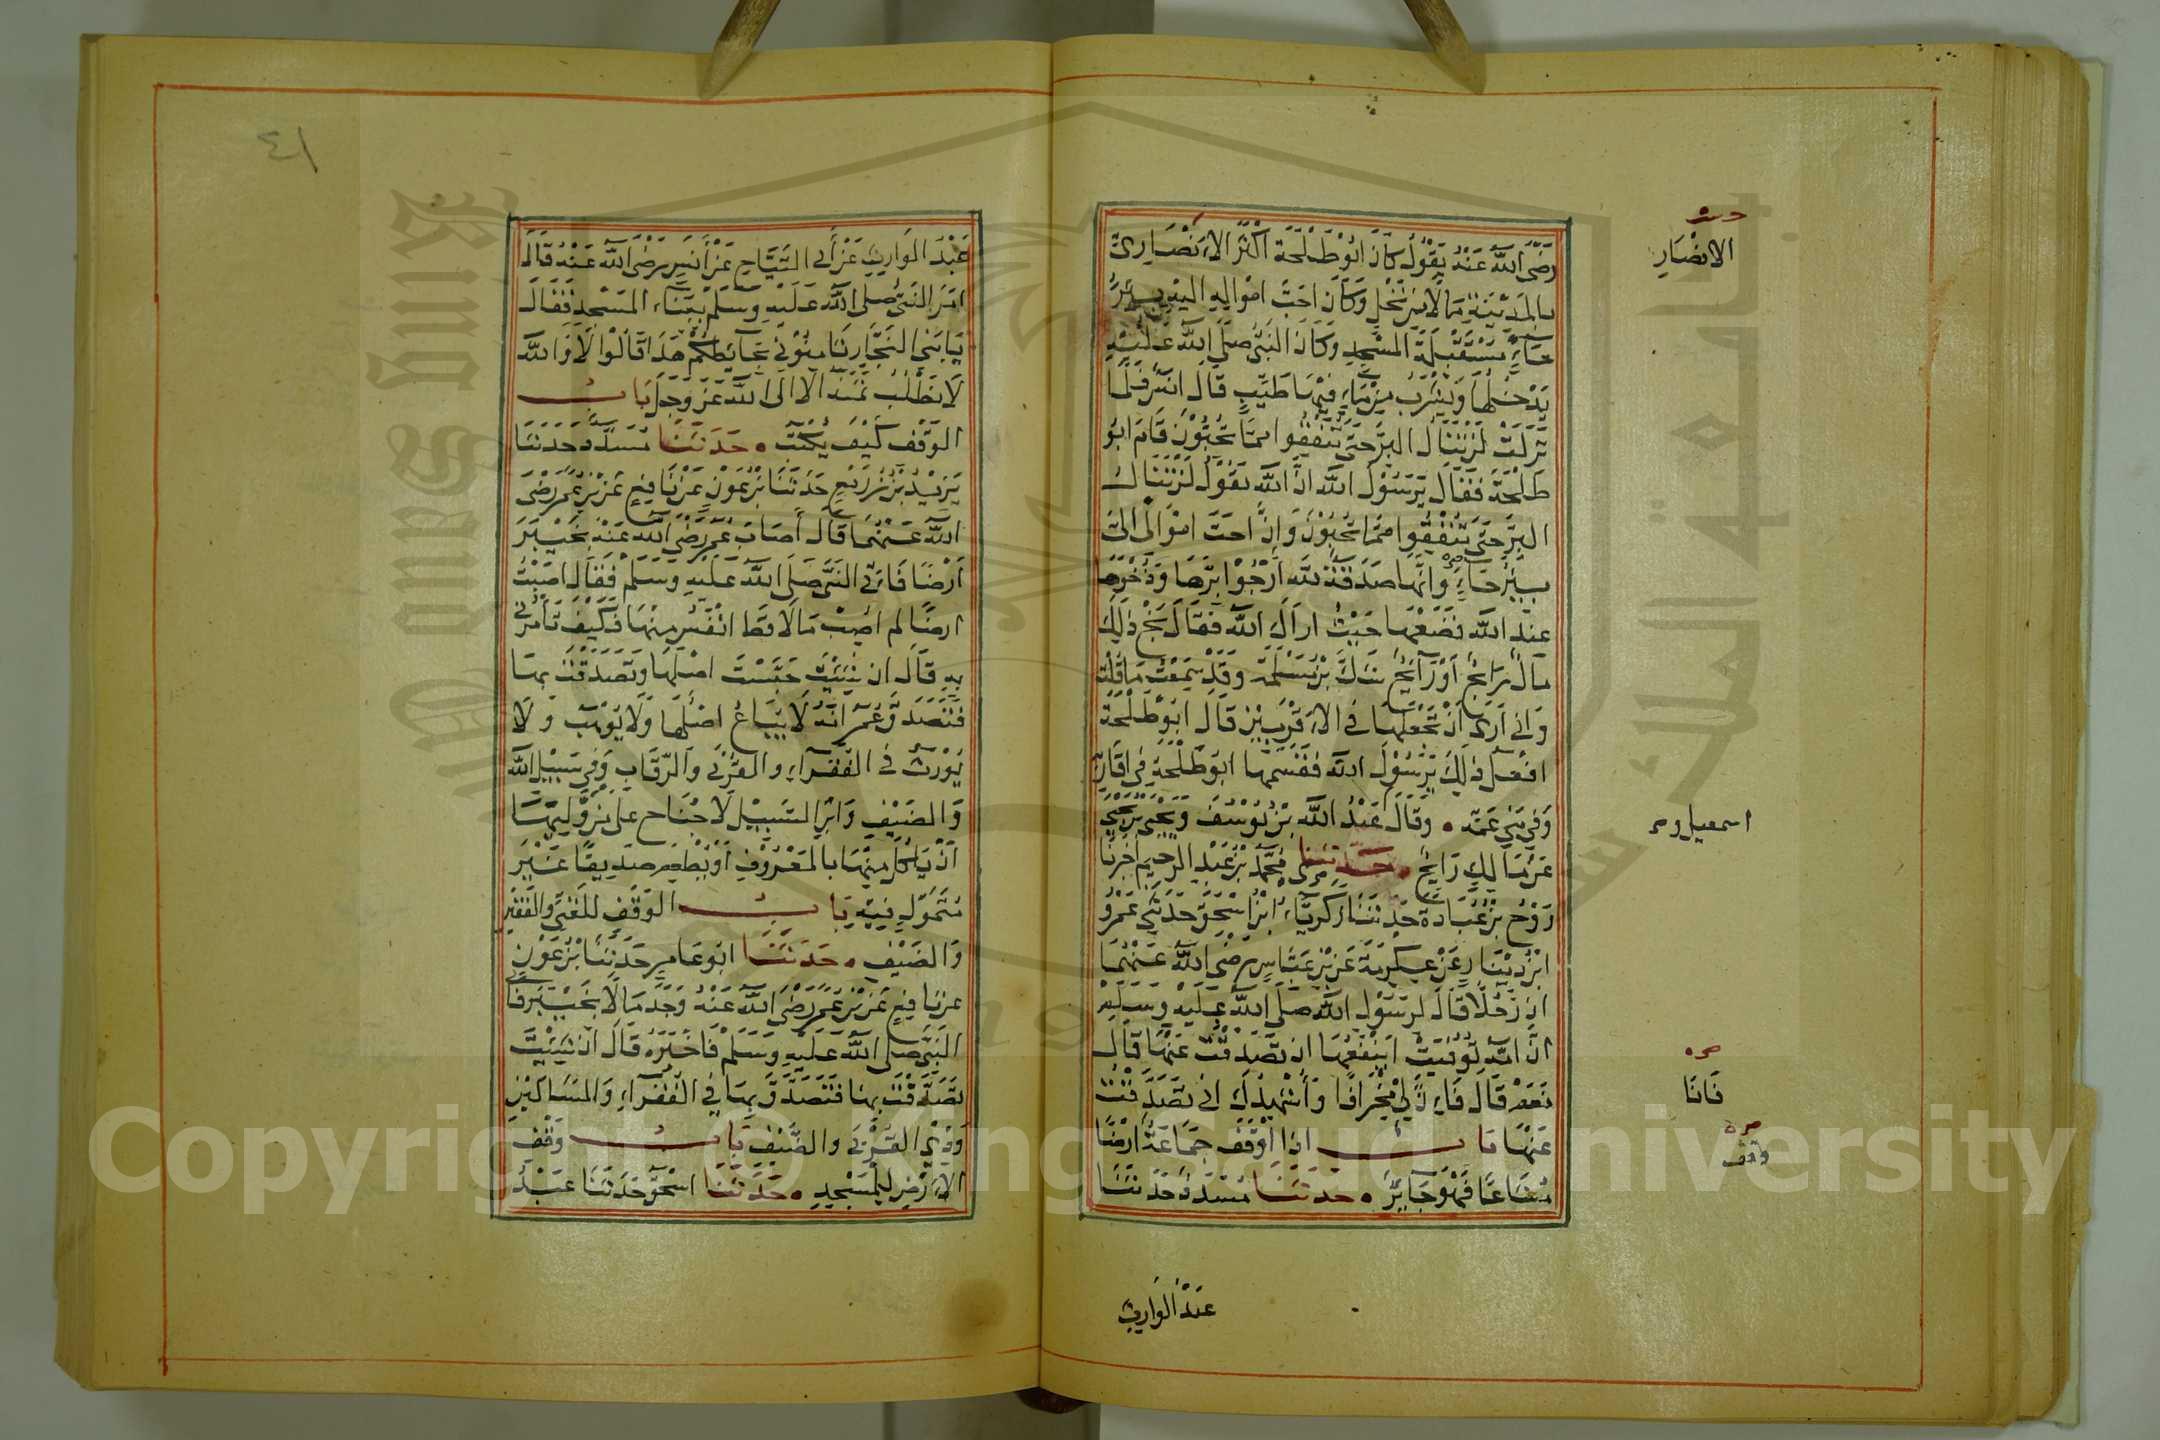 رَضِيَ اللَّهُ عَنْهُ يَقُولُ كَانَ ابُو طَلْحَةَ اكْثَرَ الانْصَارِيِّ
بالمَدِينَةِ مَالًا مِنْ نَخْلٍ وَكَانَ احَبَّ امْوَالِهِ اليْهِ بيرُ
حَاءٍ مُسْتَقْبِلَةَ المَسْجِدِ وَكَانَ النَّبِيُّ صَلَّى اللَّهُ عَلَيْهِ
يَدْخُلُهَا وَيَشْرَبُ مِنْ مَاءٍ فِيْهَا طَيِّبٍ قَالَ انَسٌ فَلَمَّا
نَزَلَتْ لَنْ تَنَالُوا البِرَّ حَتَّى تُنْفِقُوا مِمَّا تُحِبُّوْنَ قَامَ ابُو
طَلْحَةَ فَقَالَ يَرَسُوْلَ اللَّه انَّ اللَّه يَقُولُ لَنْ تَنَالُ
البِرَّ حَتَّى تُنْفِقُوا مِمَّا تُحِبُّوْنَ وَاِنَّ احَبَّ امْوَالِى الىَّ
بِيْرُحَاءٍ وَانَّهَا صَدَقَةٌ لله ارْجُوْا بِرَّهَا وَذُخْرَهَا
عِنْدَ اللَّه فَضَعْهَا حَيْثُ ارَاكَ اللَّه فَقَالَ بَخْ ذٰلِكَ
مَالٌ رَابِحٌ اَوْ رَايِحٌ شَكَّ بْنُ مَسْلَمَةَ وَقَدْ سَمِعْتُ مَا قُلْتَ
وَاِنِّى اَرَى اَنْ تَجْعَلَهَا فِي الاقْرَبِيْنَ قَالَ ابُو طَلْحَةَ
افْعَلُ ذٰلِكَ يَرَسُوْلَ اللَّه فَقَسَمَهَا ابُو طَلْحَةَ فِي اقَارِبِهِ
وَفِي بَنِي عَمِّهِ وَقَالَ عَبْدُ اللَّه بْنُ يُوْسُفَ وَيَحْيَى بْنُ يَحْيَى
عَنْ مَالِكٍ رَايِحٌ حَدَّثَنَا مُحَمَّدُ بْنُ عَبْدِ الرَّحِيم اخْبَرَنَا
رَوْحُ بْنُ عُبَادَةَ حَدَّثَنَا زَكَرِيَّاءُ ابْنُ اسْحٰقَ حَدَّثَنِي عَمْرُو
ابْنُ دِيْنَارٍ عَنْ عِكْرِمَةَ عَنْ بْنِ عَبَّاسٍ رَضِيَ اللَّه عَنْهُمَا
انَّ رَجُلًا قَالَ لِرَسُوْلِ اللَّه صَلَّى اللَّه عَلَيْهِ وَسَلَّمَ
انَّ امَّهُ تُوُفِّيَتْ ايَنْفَعُهَا انْ تَصَدَّقْتُ عَنْهَا قَالَ
نَعَمْ قَالَ فَاِنَّ لِي مِخْرَافًا وَأُشْهِدُكَ انِّي تَصَدَّقْتُ
عَنْهَا بَابُ اذَا اَوْقَفَ جَمَاعَةٌ ارْضًا
مُشَاعًا فَهُوَ جَايِزٌ حَدَّثَنَا مُسَدَّدٌ حَدَّثَنَا
عَبْدُ الوَارِثِ
الانْصَارِ
اسمعيل
فَانَا
وقف
٤١
عَبْدُ الْوَارِثِ عَنْ أَبِي التَّيَّاحِ عَنْ أَنَسٍ رَضِيَ اللَّه عَنْهُ قَالَ
امَرَ النَّبِيُّ صلى اللَّه عَلَيْهِ وَسَلَّم بِبِنَاءِ المَسْجِدِ فَقَالَ
يَا بَنِي النَّجَّارِ ثَامِنُوْنِي بِحَائِطِكُمْ هَذَا قَالُوْا لَا وَاللَّه
لَا نَطْلُبُ ثَمَنَهُ الَّا الَى اللَّه عَزَّ وَجَلَّ بَابُ
الوَقْفِ كَيْفَ يُكْتَبُ حَدَّثَنَا مُسَدَّدٌ حَدَّثَنَا
يَزِيْدُ بْنُ زُرَيْعٍ حَدَّثَنَا بْنُ عَوْنٍ عَنْ نَافِعٍ عَنْ بْنِ عُمَرَ رَضِيَ
اللَّه عَنْهُمَا قَالَ أَصَابَ عُمَرُ رَضِيَ اللَّه عَنْهُ بِخَيْبَرَ
اَرْضًا فَاتَى النَّبِيَّ صَلَّى اللَّه عَلَيْهِ وَسَلَّمَ فَقَالَ اصَبْتُ
ارضًا لم اصِبْ مَالًا قَطُّ انْفَسَ مِنْهَا فَكَيْفَ تَأْمُرُنِي
بِهِ قَالَ ان شِئْتَ حَبَّسْتَ اصْلَهَا وَتَصَدَّقْتَ بِهَا
فَتَصَدَّقَ عُمَرُ انَّهُ لَا يُبَاعُ اصْلُهَا وَلَا يُوْهَبُ وَلَا
يُوْرَثُ فِي الفُقَرَاءِ وَالقُرْبَى وَالرِّقَابِ وَفِي سَبِيْلِ اللَّه
وَالضَّيْفِ وَابْنِ السَّبِيْلِ لَا جُنَاحَ عَلَى مَنْ وَلِيَهَا
اَنْ يَأْكُلَ مِنْهَا بِالمَعْرُوْفِ اَوْ يُطْعِمَ صَدِيْقًا غَيْرَ
مُتَمَوِّلٍ فِيْهِ بَابُ الوَقْفِ لِلْغَنِيِّ وَالفَقِيْرِ
وَالضَّيْفِ حَدَّثَنَا ابُو عَاصِمٍ حَدَّثَنَا بْنُ عَوْنٍ
عَنْ نَافِعٍ عَنْ بْنِ عُمَرَ رَضِيَ اللَّه عَنْهُ وَجَدَ مَالًا بِخَيْبَرَ فَأَتَى
النَّبِيَّ صلى اللَّه عَلَيْهِ وَسَلَّمَ فَاخْبَرَهُ قَالَ ان شِئْتَ
تَصَدَّقْتَ بِهَا فَتَصَدَّقَ بِهَا فِي الفُقَرَاءِ وَالمَسَاكِيْنِ
وَذِي القُرْبَى وَالضَّيْفِ بَابُ وَقْفِ
الارْضِ لِلْمَسْجِدِ حَدَّثَنَا اسْحٰقُ حَدَّثَنَا عَبْدُ
Copyright © King Saud University